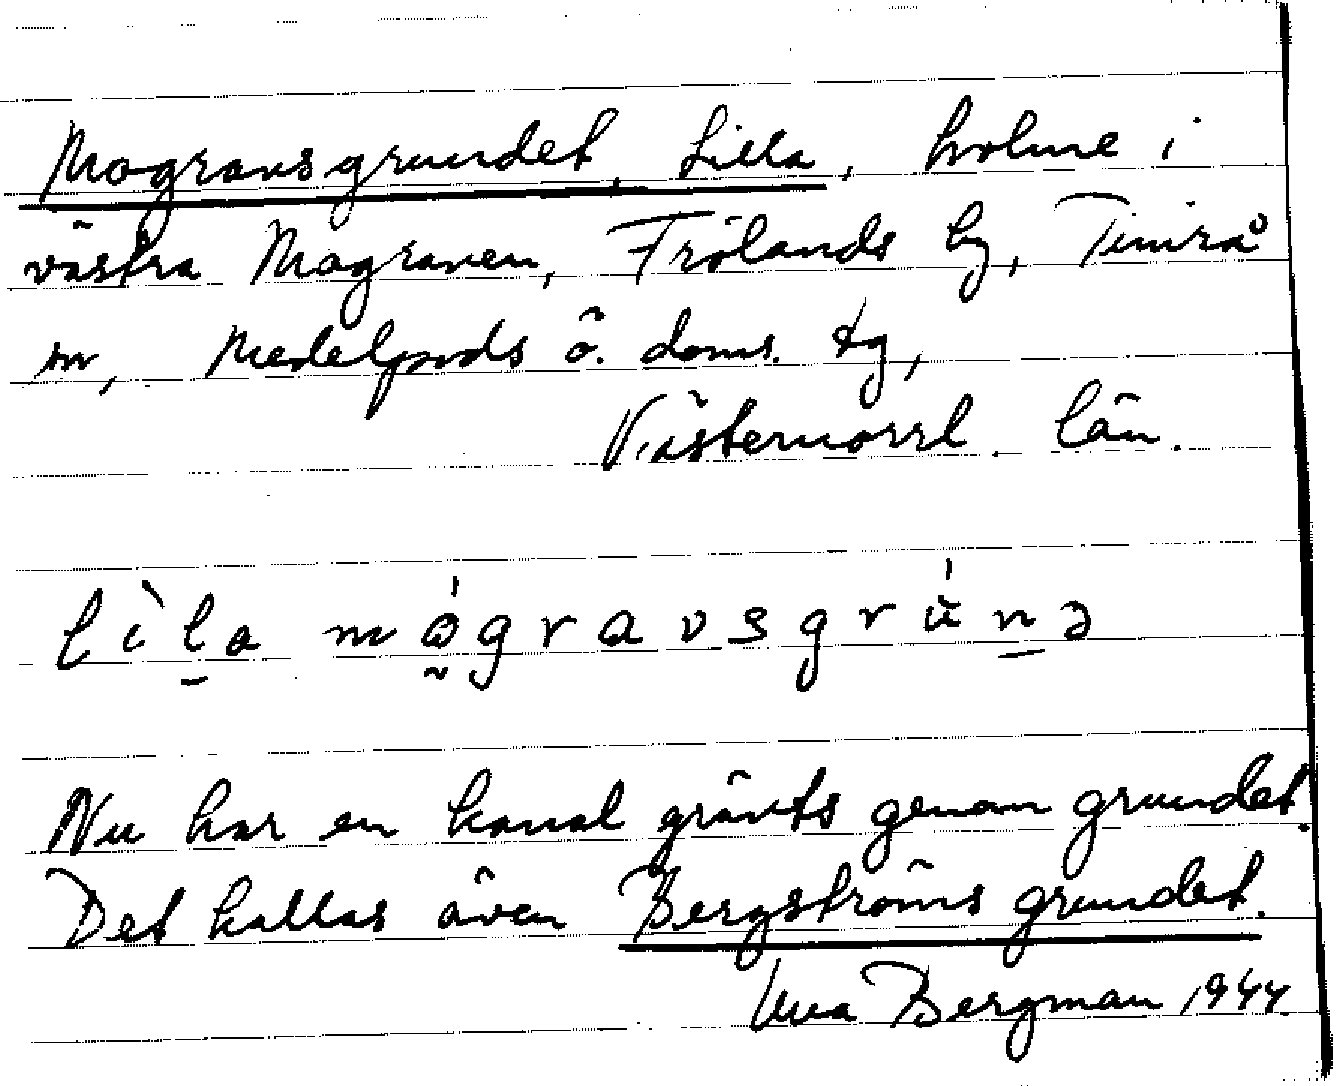 Mogravsgrundet, Lilla, holme i
västra Mograven, Frölands by, Timrå
sn, Medelpads ö. doms. tg,
Västernorrl. län.
lìla mǫ́gravsgrúnə
Nu har en kanal grävts genom grundet.
Det kallas även Bergströms grundet.
Bergman 1944.